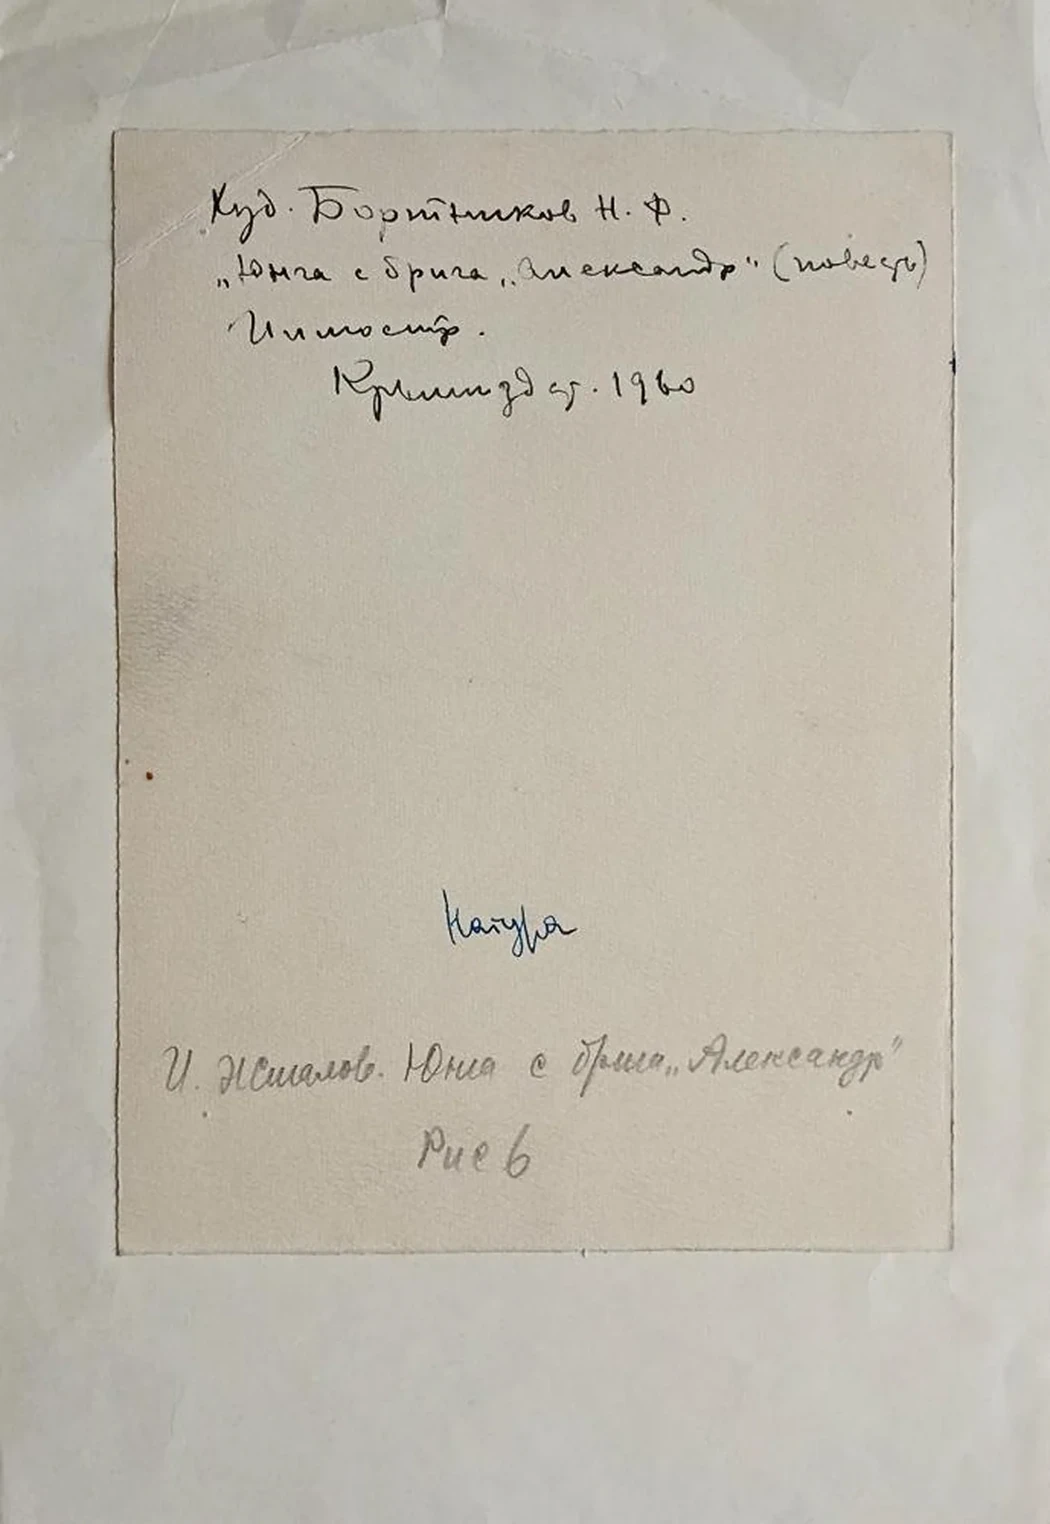 Худ. Бортников Н. Ф.
„Юнга с брига „Александр" (повесть)
Иллюстр.
Крымиздат. 1960
Натура
И. Жигалов. Юнга с брига „Александр"
Рис 6